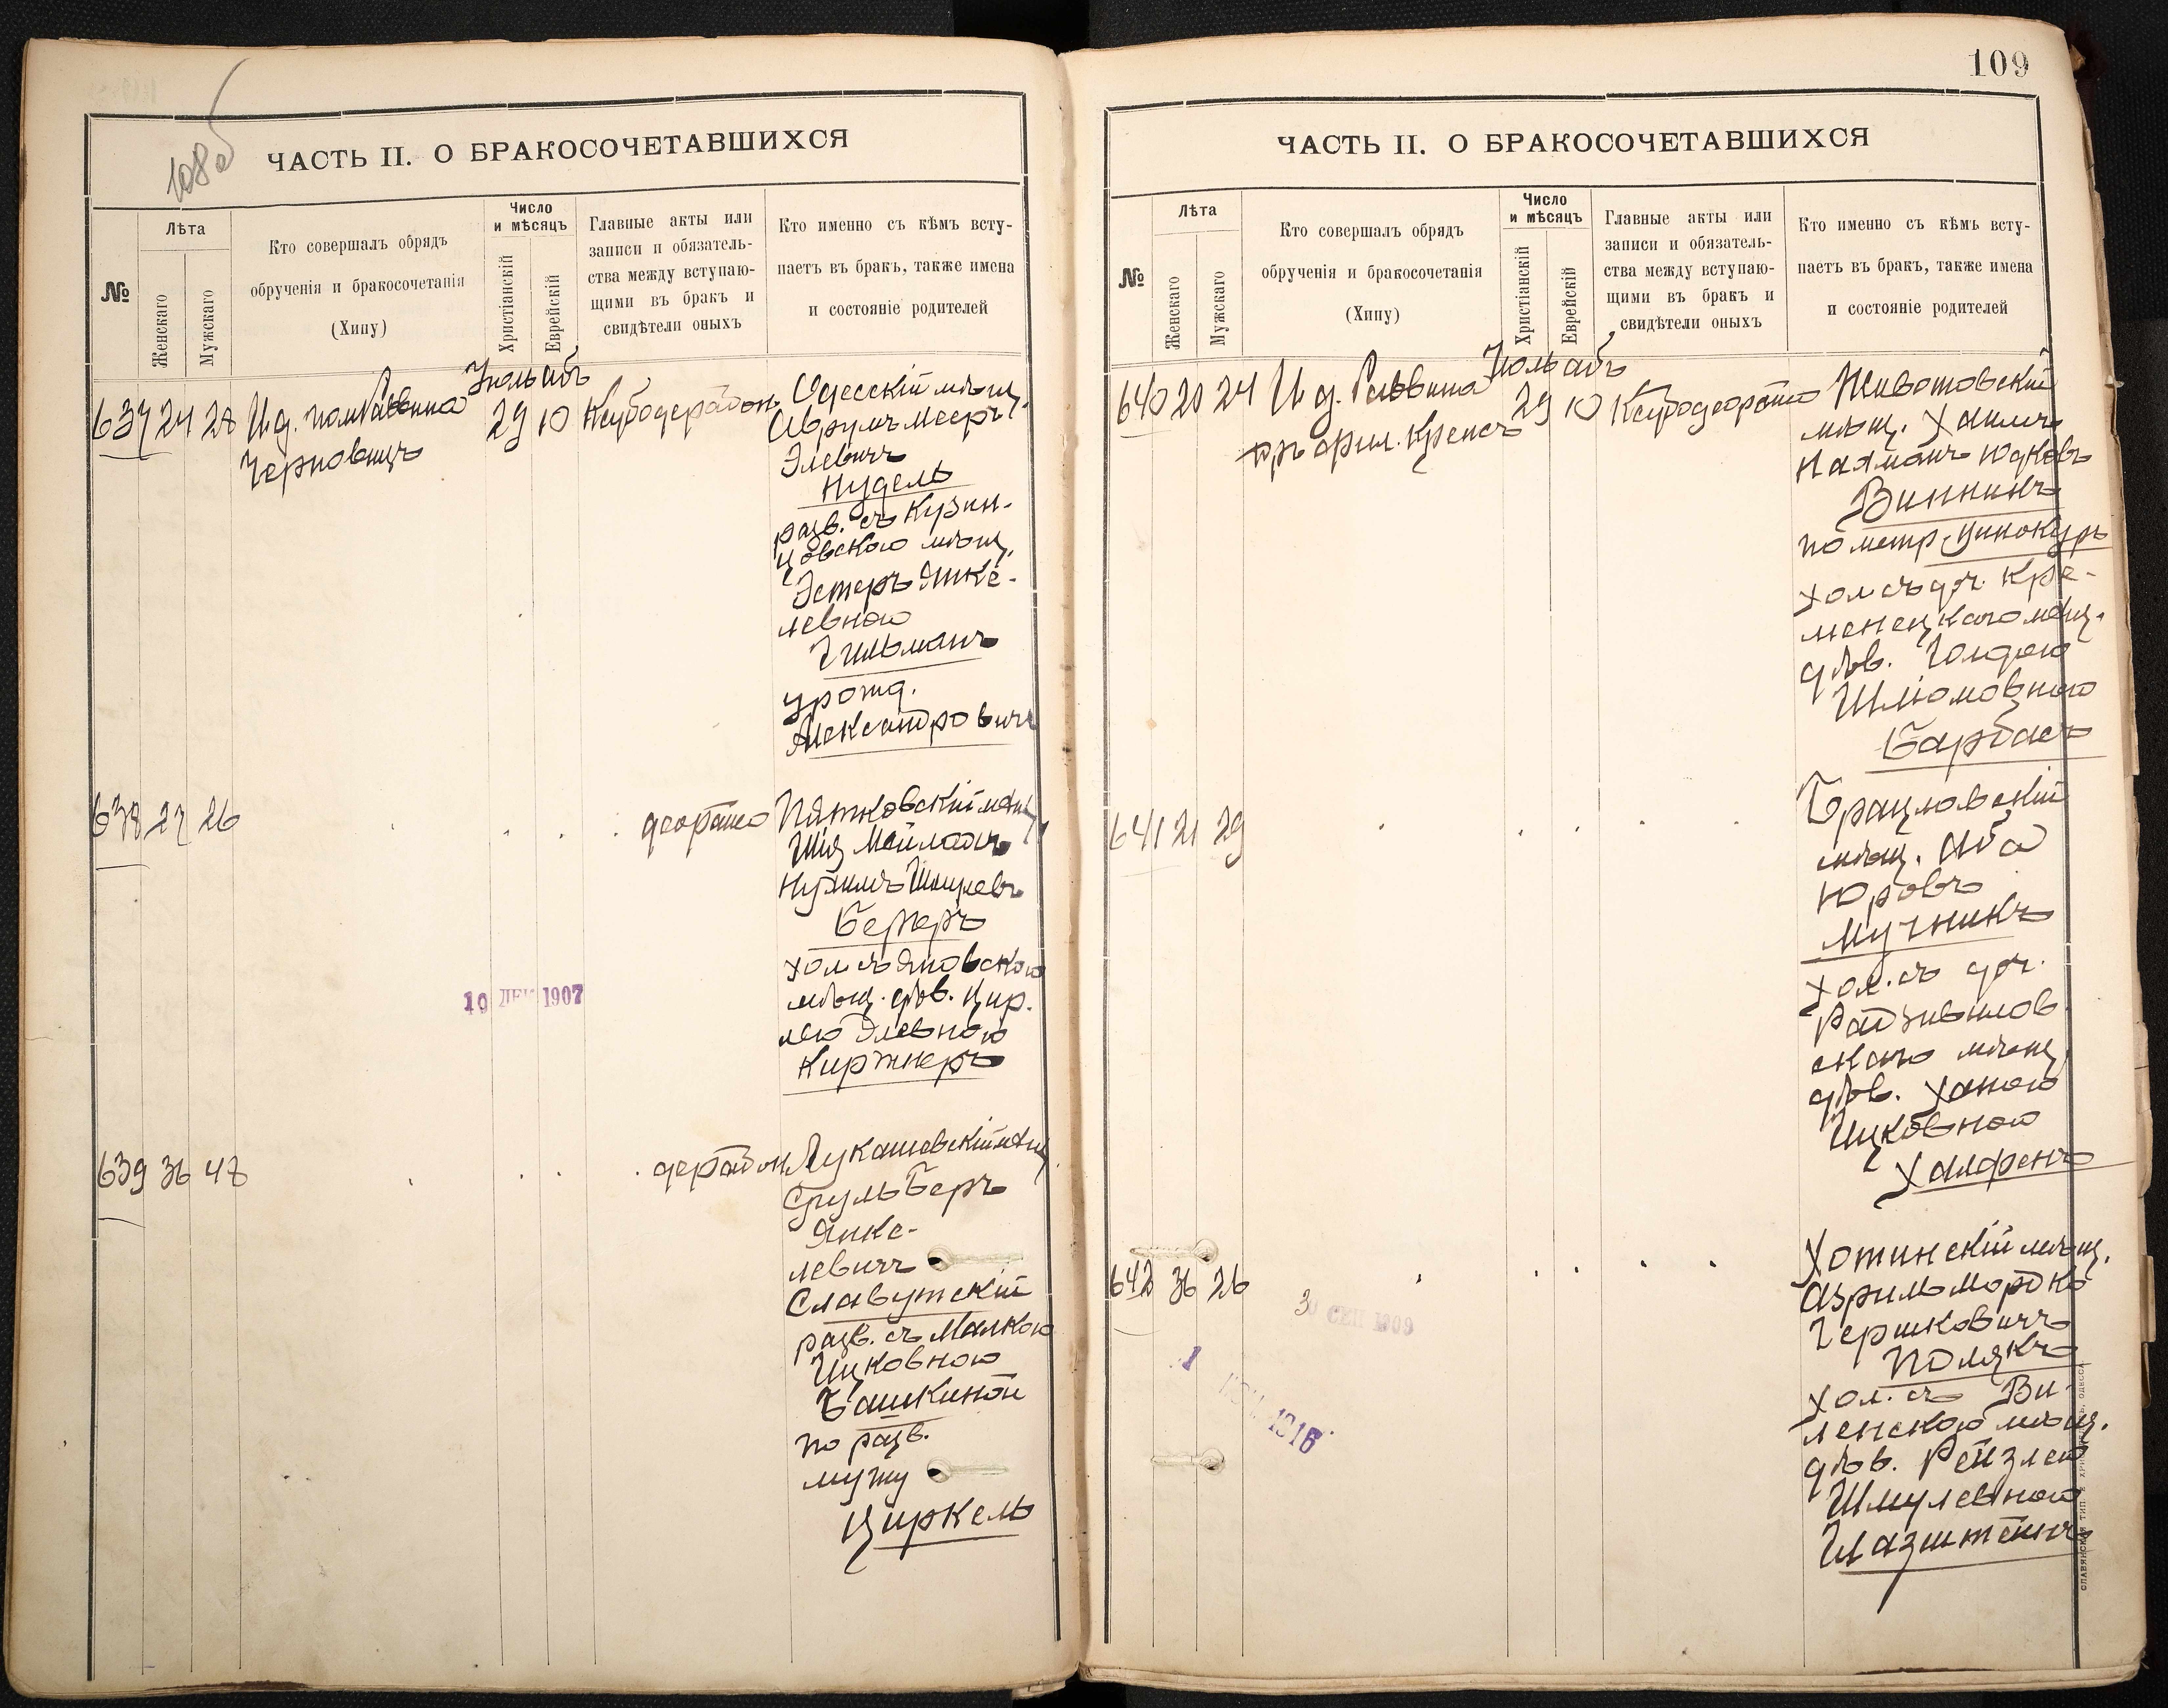 108 об
ЧАСТЬ II. О БРАКОСОЧЕТАВШИХСЯ
№
Лѣта
Женскаго
Мужскаго
Кто совершалъ обрядъ
обрученія и бракосочетанія
(Хипу)
Число
и мѣсяцъ
Христіанскій
Еврейскій
Главные акты или
записи и обязатель-
ства между вступаю-
щими въ бракъ и
свидѣтели оныхъ
Кто именно съ кѣмъ всту-
паетъ въ бракъ, также имена
и состояніе родителей
Іюль абъ
637 24 28 И. д. пом Раввина 29 10
Черновицъ
Одесскій мѣщ.
Аврумъ Мееръ
Элевичъ
Нудель
разв. съ Кузми-
Эстеръ Янке-
левною
Гильманъ
урожд.
Александровичъ
638 27 26
Пятковскій мѣщ.
Шія Мейлахъ
Нухимъ Шмулевъ
Бергеръ
хол съ Яновскою
мѣщ. дѣв. Цир-
лею Элевною
Киржнеръ
10 ДЕК 1907
639 36 48
Лукашевскій мѣщ.
Сруль Беръ
Янке-
левичъ
Славутскій
разв. съ Малкою
Ицковною
Башкиной
по разв.
мужу
Циркель
109
ЧАСТЬ II. О БРАКОСОЧЕТАВШИХСЯ
№
Лѣта
Женскаго
Мужскаго
Кто совершалъ обрядъ
обрученія и бракосочетанія
(Хипу)
Число
и мѣсяцъ
Христіанскій
Еврейскій
Главные акты или
записи и обязатель-
ства между вступаю-
щими въ бракъ и
свидѣтели оныхъ
Кто именно съ кѣмъ всту-
паетъ въ бракъ, также имена
и состояніе родителей
Іюль абъ
640 20 24 И. д. Раввина 29 10
Крепсъ
Животовскій
мѣщ. Хаимъ
Нахманъ Юдковъ
Виннинъ
по метр. Винокуръ
хол съ дч. Кре-
менецкаго мѣщ.
дѣв. Голдою
Шліомовною
Барбасъ
641 21 29
Брацлавскій
мѣщ. Аба
Юровъ
Мучникъ
хол. съ дч.
Радзивилов
скаго мѣщ.
дѣв. Ханою
Ицковною
Халфенъ
642 36 26
Хотинскій мѣщ.
Азриль Мордко
Гершковичъ
Полякъ
хол. съ Ви-
ленскою мѣщ.
дѣв. Рейзлею
Шмулевною
Глазштейнъ
30 СЕН 1909
1
1916
СЛАВЯНСКАЯ ТИП. ОДЕССА